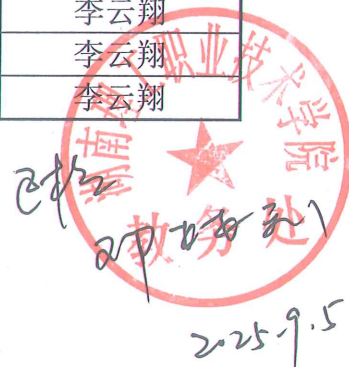 李云翔
李云翔
李云翔
湖南理工职业技术学院
教务处
已检
2025.9.5